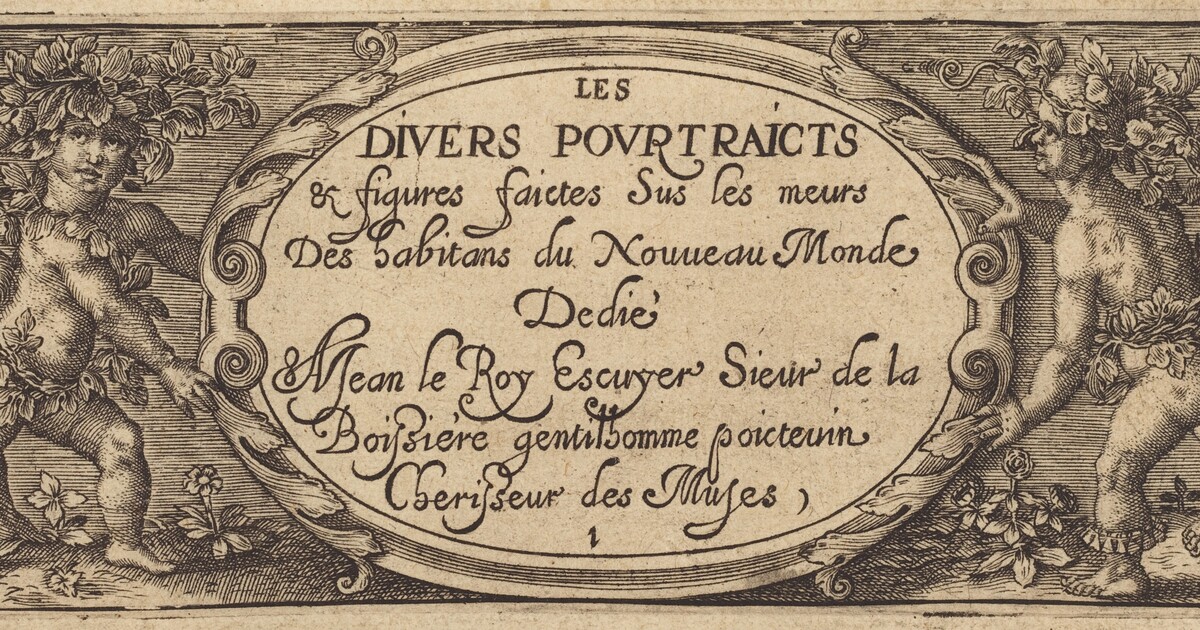 LES
DIVERS POVRTRAICTS
& figures faictes Sus les meurs
Des habitans du Nouueau Monde
Dedié
A Jean le Roy Escuyer Sieur de la
Boissiére gentilhomme poicteuin
Cherisseur des Muses ,
1